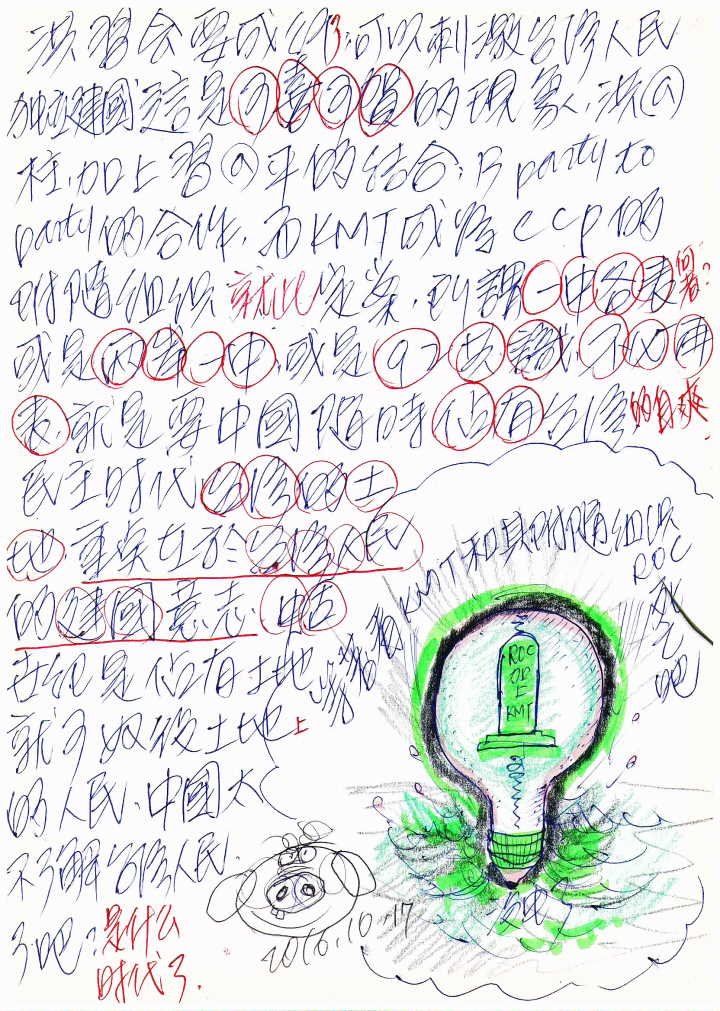 洪習会要成行了,可以刺激台湾人民
独立建國這是可喜可賀的現象,洪@
柱,加上習@平的结合,是party to
party的合作,而KMT成為CCP的
附隨组织就此定案,所謂一中各表何者?
或是兩岸一中,或是九二共識,不以再
表,就是要中國隨時佔有台湾的自爽
民主时代台湾的土
地,重点在於台湾人民
的建國意志,中古
世纪是佔有土地
就可奴役土地上
的人民,中國太
不了解台湾人民
了吧?是什么
时代了.
KMT和其附隨组织
ROC
死了吧
ROC
OR
上
KMT
2016.10.17